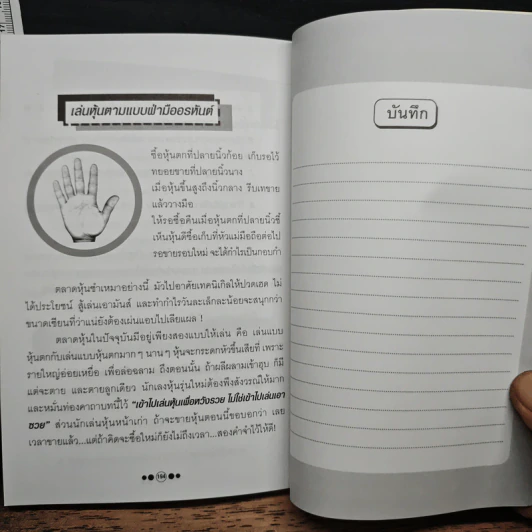 เล่นหุ้นตามแบบฝ่ามืออรหันต์
ซื้อหุ้นตกที่ปลายนิ้วก้อย เก็บรอไว้
ทยอยขายที่ปลายนิ้วนาง
เมื่อหุ้นขึ้นสูงถึงนิ้วกลาง รีบเทขาย
แล้ววางมือ
ให้รอซื้อคืนเมื่อหุ้นตกที่ปลายนิ้วชี้
เห็นหุ้นดีซื้อเก็บที่หัวแม่มือถือต่อไป
รอขายรอบใหม่ จะได้กำไรเป็นกอบกำ
ตลาดหุ้นซำเหมาอย่างนี้ มัวไปอาศัยเทคนิเกิลให้ปวดเฮด ไม่
ได้ประโยชน์ สู้เล่นเอามันส์ และทำกำไรวันละเล็กละน้อยจะสนุกกว่า
ขนาดเซียนที่ว่าแน่ยังต้องเผ่นแอบไปเลียแผล !
ตลาดหุ้นในปัจจุบันมีอยู่เพียงสองแบบให้เล่น คือ เล่นแบบ
หุ้นตกกับเล่นแบบหุ้นตกมากๆ นานๆ หุ้นจะกระดกหัวขึ้นเสียที เพราะ
รายใหญ่อ่อยเหยื่อ เพื่อล่อฉลาม ถึงตอนนั้น ถ้าผลีผลามเข้าฮุบ ก็มี
แต่จะตาย และตายลูกเดียว นักเลงหุ้นรุ่นใหม่ต้องพึงสังวรณ์ให้มาก
และหมั่นท่องคาถาบทนี้ไว้ "เข้าไปเล่นหุ้นเพื่อหวังรวย ไม่ใช่เข้าไปเล่นเอา
ซวย" ส่วนนักเล่นหุ้นหน้าเก่า ถ้าจะขายหุ้นตอนนี้ขอบอกว่า เลย
เวลาขายแล้ว...แต่ถ้าคิดจะซื้อใหม่ก็ยังไม่ถึงเวลา...สองคำจำไว้ให้ดี!
194
บันทึก